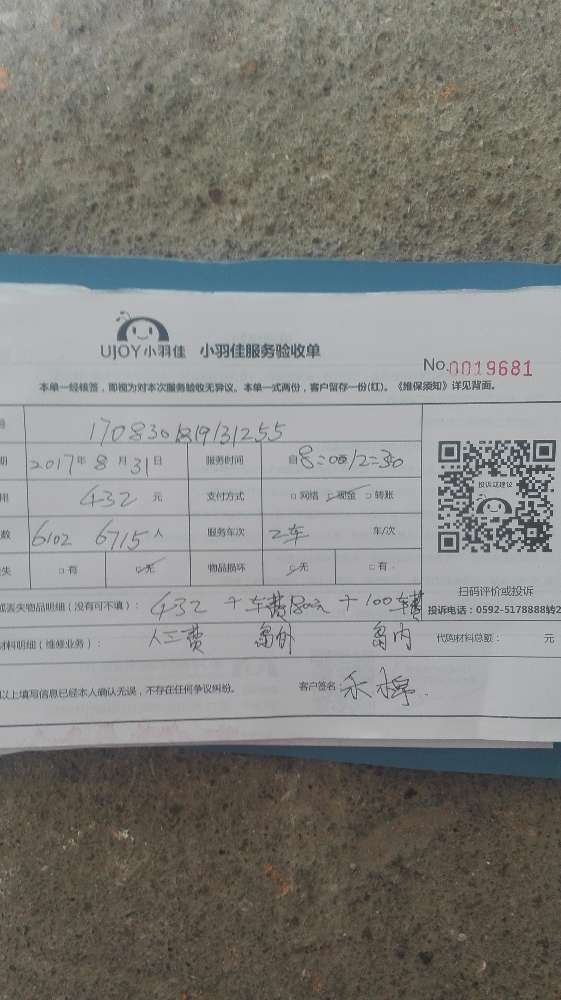 UJOY小羽佳 小羽佳服务验收单
No.0019681
本单一经核签，即视为对本次服务验收无异议。本单一式两份，客户留存一份(红)。《维保须知》详见背面。
号
期 2017年8月31日 服务时间 自8:00/12:30
用 432元 支付方式 □网络 ☑现金 □转账
数 6102 6715人 服务车次 2车 车/次
失 □有 ☑无 物品损坏 ☑无 □有
投诉或建议
扫码评价或投诉
或丢失物品明细（没有可不填）： 432 + 车费800元 + 100车费
投诉电话：0592-5178888转2
材料明细（维修业务）： 人工费 岛外 岛内 代购材料总额： 元
以上填写信息已经本人确认无误，不存在任何争议纠纷。 客户签名：